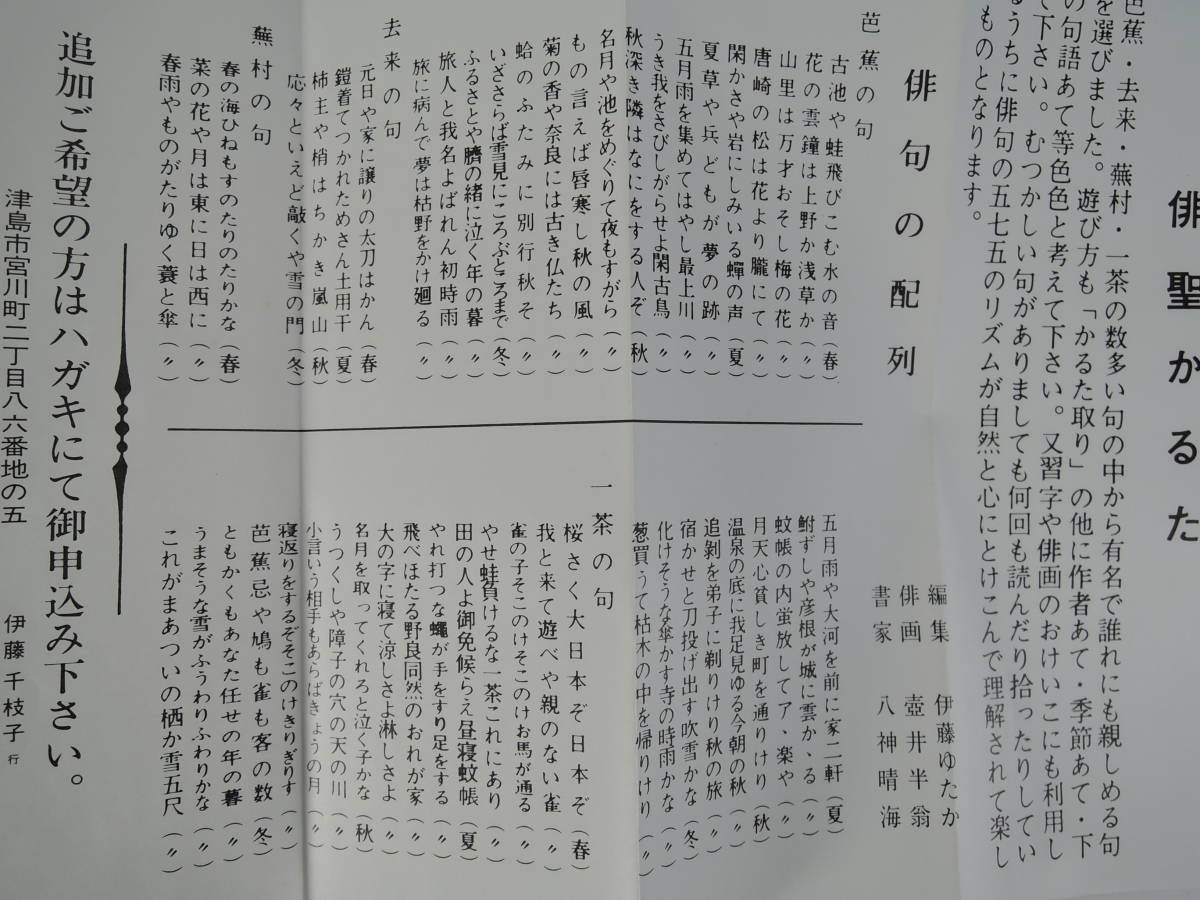 俳聖かるた
芭蕉・去来・蕪村・一茶の数多い句の中から有名で誰れにも親しめる句
を選びました。遊び方も「かるた取り」の他に作者あて・季節あて・下
の句語あて等色色と考えて下さい。又習字や俳画のおけいこにも利用し
て下さい。むつかしい句がありましても何回も読んだり拾ったりしてい
るうちに俳句の五七五のリズムが自然と心にとけこんで理解されて楽し
ものとなります。
編集 伊藤ゆたか
俳画 壺井半翁
書家 八神晴海
俳句の配列
芭蕉の句
古池や蛙飛びこむ水の音(春)
花の雲鐘は上野か浅草か(〃)
山里は万才おそし梅の花(〃)
唐崎の松は花より朧にて(〃)
閑かさや岩にしみいる蟬の声(夏)
夏草や兵どもが夢の跡(〃)
五月雨を集めてはやし最上川(〃)
うき我をさびしがらせよ閑古鳥(〃)
秋深き隣はなにをする人ぞ(秋)
名月や池をめぐりて夜もすがら(〃)
もの言えば唇寒し秋の風(〃)
菊の香や奈良には古き仏たち(〃)
蛤のふたみに別行秋そ(〃)
いざさらば雪見にころぶところまで(冬)
ふるさとや臍の緒に泣く年の暮(〃)
旅人と我名よばれん初時雨(〃)
旅に病んで夢は枯野をかけ廻る(〃)
去来の句
元日や家に譲りの太刀はかん(春)
鎧着てつかれためさん土用干(夏)
柿主や梢はちかき嵐山(秋)
応々といえど敲くや雪の門(冬)
蕪村の句
春の海ひねもすのたりのたりかな(春)
菜の花や月は東に日は西に(〃)
春雨やものがたりゆく蓑と傘(〃)
五月雨や大河を前に家二軒(夏)
鮒ずしや彦根が城に雲かゝる(〃)
蚊帳の内蛍放してアゝ楽や(〃)
月天心貧しき町を通りけり(秋)
温泉の底に我足見ゆる今朝の秋(〃)
追剝を弟子に剃りけり秋の旅(〃)
宿かせと刀投げ出す吹雪かな(冬)
化けそうな傘かす寺の時雨かな(〃)
葱買うて枯木の中を帰りけり(〃)
一茶の句
桜さく大日本ぞ日本ぞ(春)
我と来て遊べや親のない雀(〃)
雀の子そこのけそこのけお馬が通る(〃)
やせ蛙負けるな一茶これにあり(〃)
田の人よ御免候らえ昼寝蚊帳(夏)
やれ打つな蠅が手をすり足をする(〃)
飛べほたる野良同然のおれが家(〃)
大の字に寝て涼しさよ淋しさよ(〃)
名月を取ってくれろと泣く子かな(秋)
うつくしや障子の穴の天の川(〃)
小言いう相手もあらばきょうの月(〃)
寝返りをするぞそこのけきりぎりす(〃)
芭蕉忌や鳩も雀も客の数(冬)
ともかくもあなた任せの年の暮(〃)
うまそうな雪がふうわりふわりかな(〃)
これがまあついの栖か雪五尺(〃)
追加ご希望の方はハガキにて御申込み下さい。
津島市宮川町二丁目八六番地の五
伊藤千枝子 行